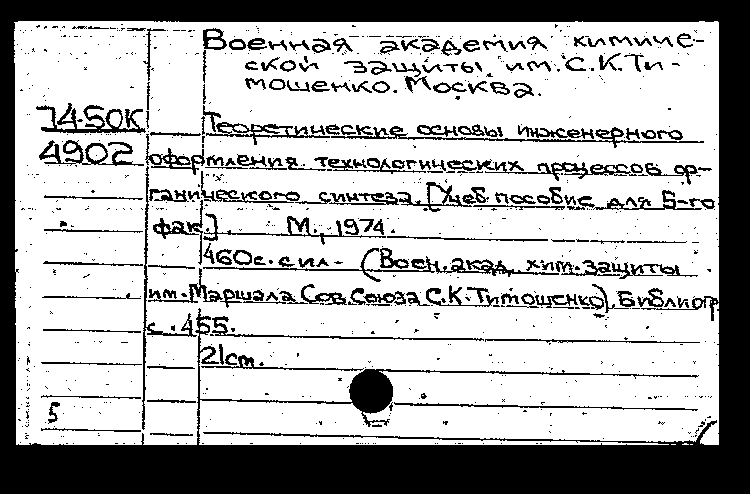 Военная академия химиче-
ской защиты им. С.К. Ти-
мошенко. Москва.
74-50К
Теоретические основы инженерного
4902
оформления технологических процессов ор-
ганического синтеза. [Учеб. пособие для 5-го
фак.]. М., 1974.
460с. с ил. - (Воен. акад. хим. защиты
им. Маршала Сов. Союза С.К. Тимошенко). Библиогр.
с. 455.
21см.
5